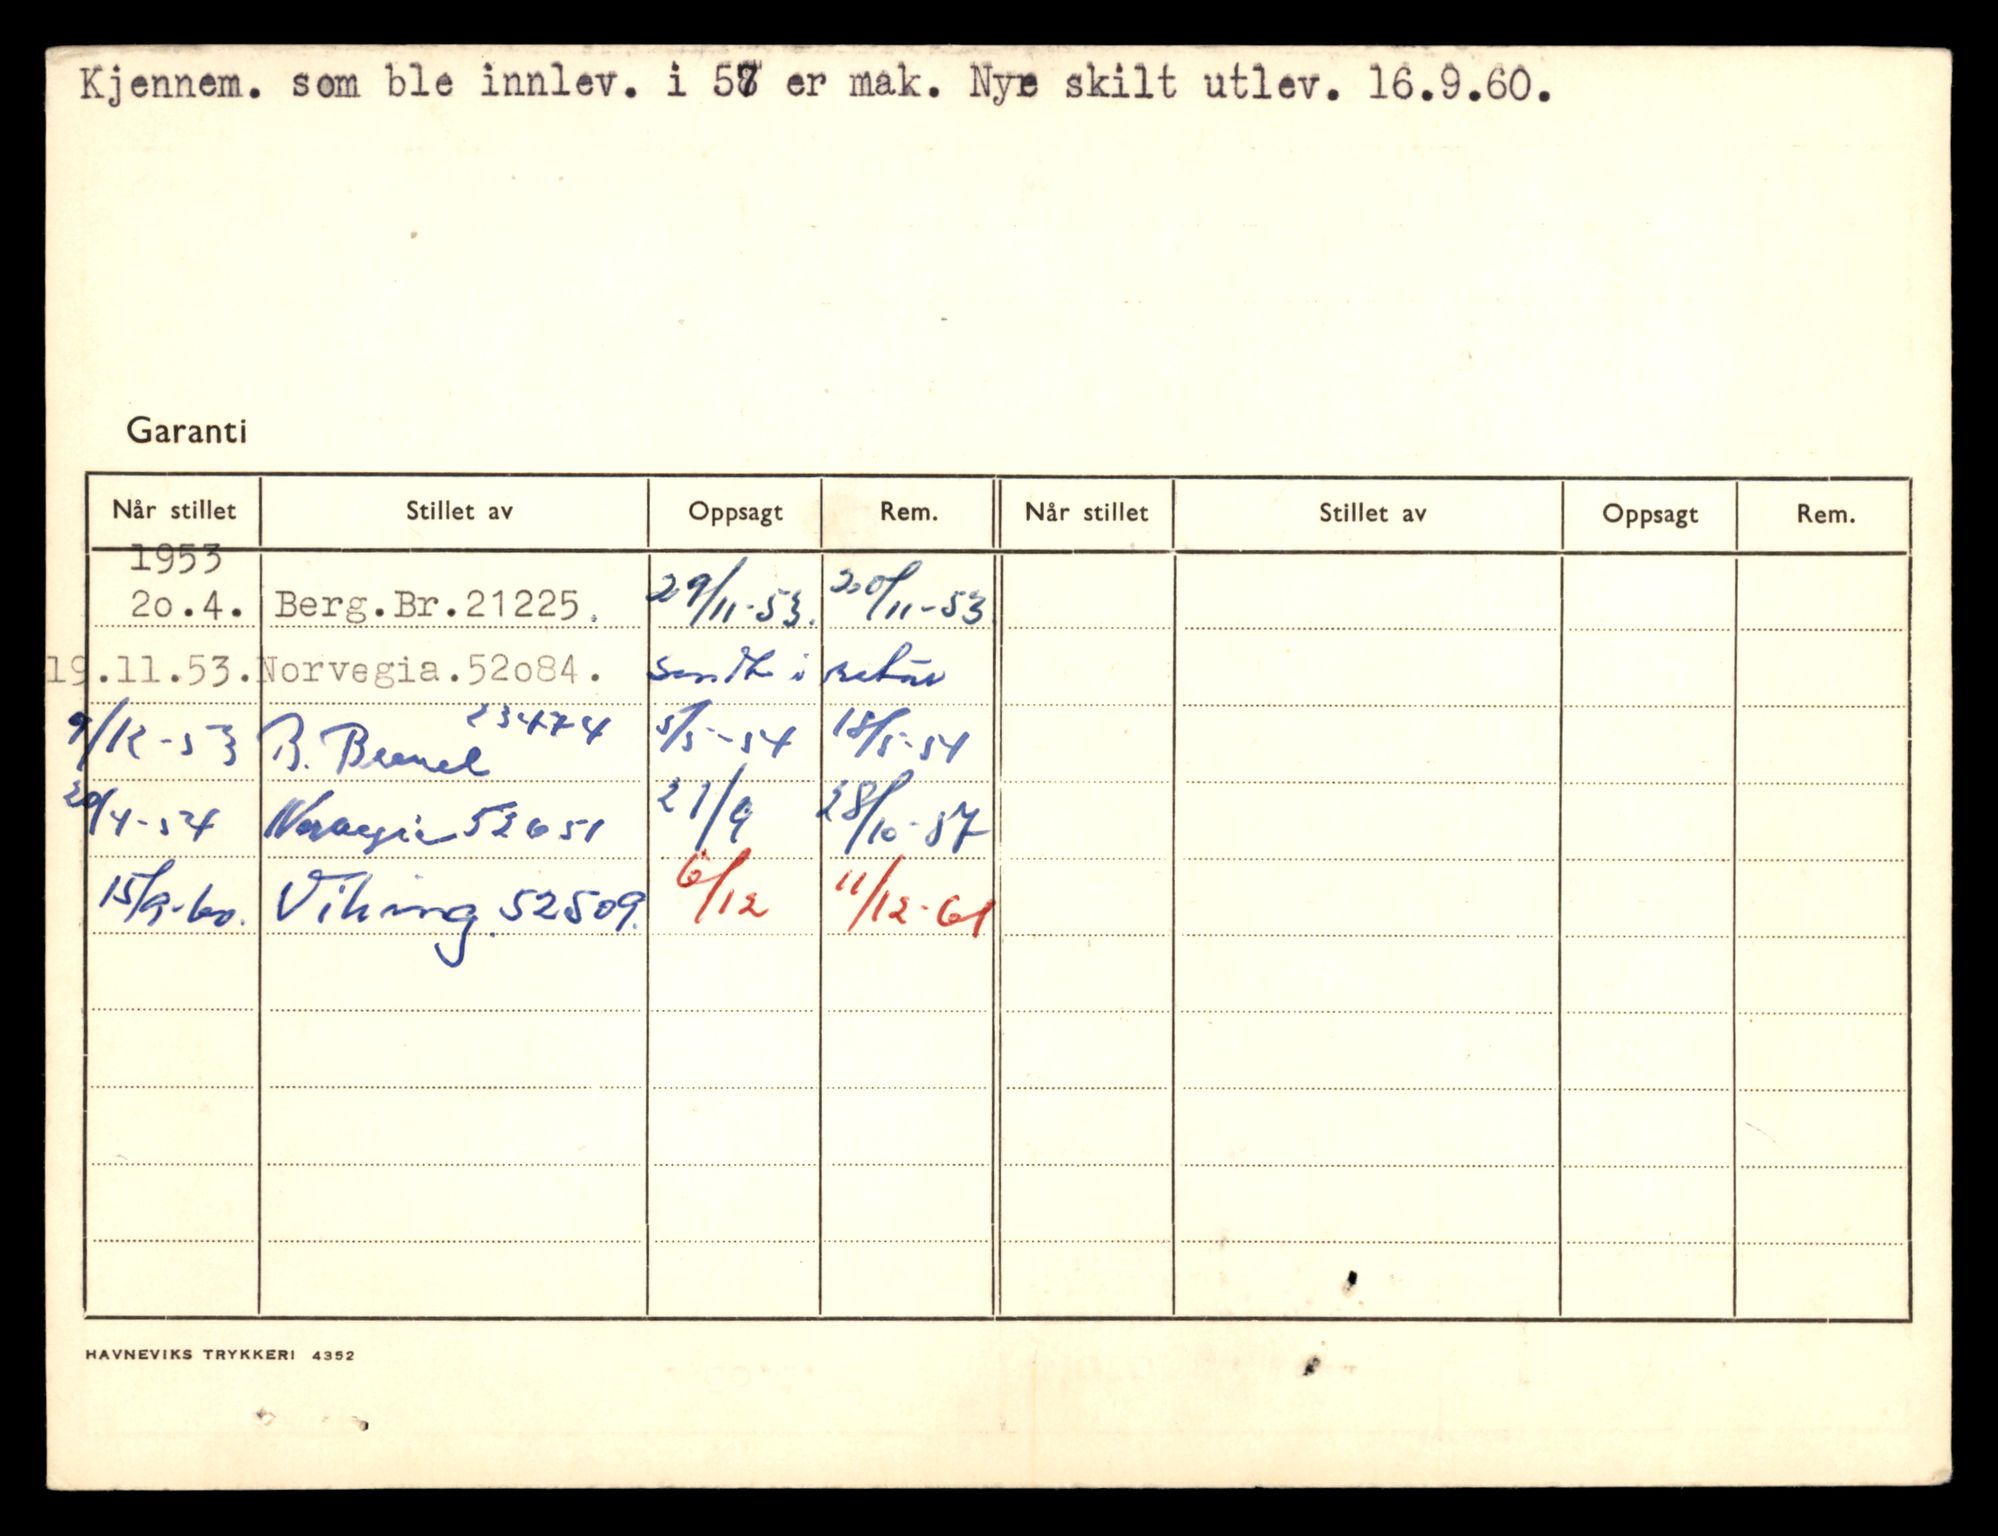 Kjennem. som ble innlev. i 57 er mak. Nye skilt utlev. 16.9.60.
Garanti
Når stillet Stillet av Oppsagt Rem. Når stillet Stillet av Oppsagt Rem.
1953
2o.4. Berg.Br.21225. 29/11-53. 20/11-53.
19.11.53. Norvegia.52o84. sendt i retur
9/12-53 B. Brand 23474 5/5-54 18/5-54
20/4-54 Norvegia 52651 21/9 28/10-57
15/9-60. Viking. 52509. 6/12 11/12-61
HAVNEVIKS TRYKKERI 4352